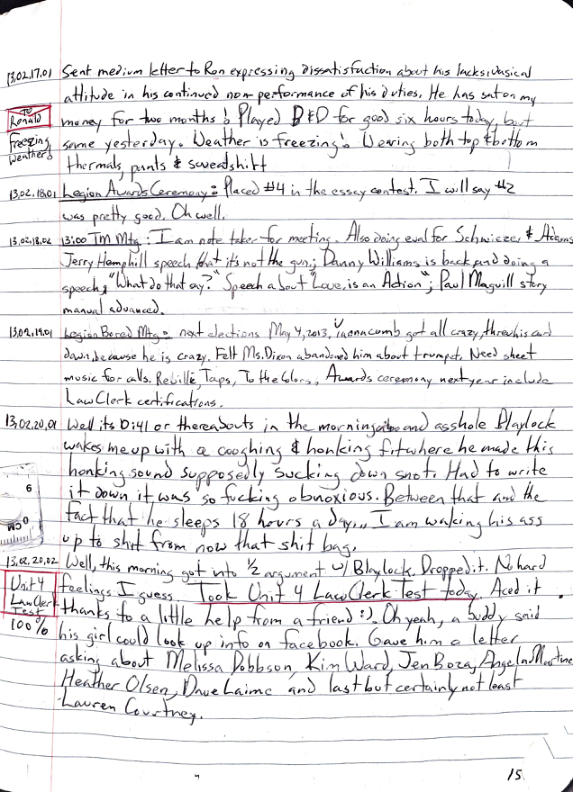 13.02.17.01 Sent medium letter to Ron expressing dissatisfaction about his lacksidasical
attitude in his continued non performance of his duties. He has sat on my
To Ronald money for two months! Played D&D for good six hours today, but
Freezing Weather! same yesterday. Weather is freezing! Wearing both top & bottom
thermals, pants & sweatshirt
13.02.18.01 Legion Awards Ceremony: Placed #4 in the essay contest. I will say #2
was pretty good. Oh well.
13.02.18.02 13:00 TM Mtg: I am note taker for meeting. Also doing eval for & Adams
Jerry Hemphill speech that it's not the gun; Danny Williams is back and doing a
speech, "What do that say?" Speech about "Love, is an Action"; Paul Maguill story
manual advanced.
13.02.19.01 Legion Bored Mtg: next elections May 4, 2013. got all crazy, threw his card
down because he is crazy. Felt Ms. Dixon abandoned him about trumpet. Need sheet
music for calls. Reville, Taps, To the Colors, Awards ceremony next year include
Law Clerk certifications.
13.02.20.01 Well its 0:41 or thereabouts in the morning and asshole Blaylock
wakes me up with a cooghing & honking fit where he made this
honking sound supposedly sucking down snot. Had to write
it down it was so fucking obnoxious. Between that and the
fact that he sleeps 18 hours a day... I am waking his ass
up to shit from now that shit bag.
13.02.20.02 Well, this morning got into ½ argument w/ Blaylock. Dropped it. No hard
Unit 4 Law Clerk Test feelings I guess. Took Unit 4 Law Clerk Test today. Aced it.
100% thanks to a little help from a friend :). Oh yeah, a buddy said
his girl could look up info on facebook. Gave him a letter
asking about Melissa Dobbson, Kim Ward, Jen Boza, Angela
Heather Olsen, Dave Laime and last but certainly not least
Lauren Courtney.
6
15